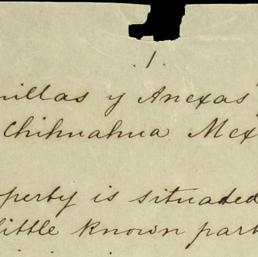 .1.
nillas y Anexas"
Chihuahua Mex
operty is situated
little known part